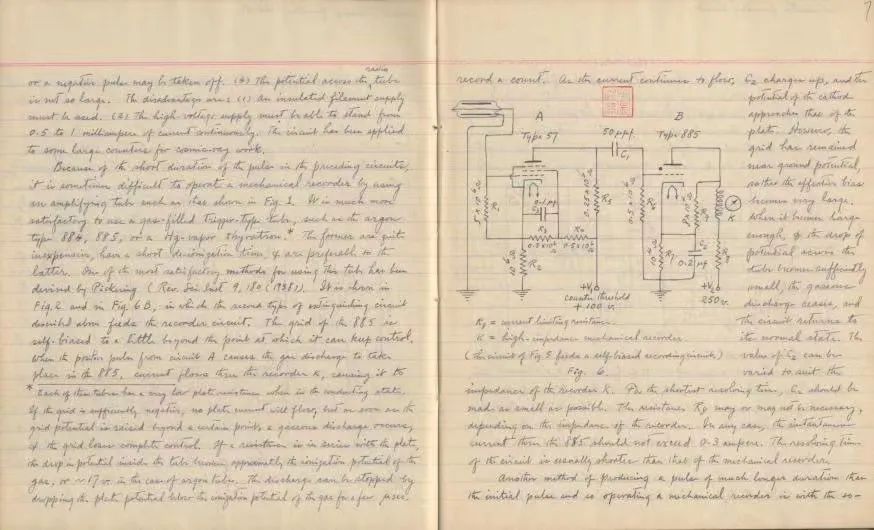 radio
or a negative pulse may be taken off. (4) The potential across the tube
is not so large. The disadvantages are: (1) An insulated filament supply
must be used. (2) The high-voltage supply must be able to stand from
0.5 to 1 milliampere of current continuously. The circuit has been applied
to some large counters for cosmic ray work.
Because of the short duration of the pulse in the preceding circuits,
it is sometimes difficult to operate a mechanical recorder by using
an amplifying tube such as that shown in Fig. 1. It is much more
satisfactory to use a gas-filled trigger-type tube, such as the argon
type 884, 885, or a Hg-vapor thyratron.* The former are quite
inexpensive, have a short deionization time, & are preferable to the
latter. One of the most satisfactory methods for using this tube has been
devised by Pickering (Rev. Sci. Inst 9, 180 (1938)). It is shown in
Fig. 2 and in Fig. 6B, in which the second type of extinguishing circuit
described above feeds the recorder circuit. The grid of the 885 is
self-biased to a little beyond the point at which it can keep control.
When the positive pulse from circuit A causes the gas discharge to take
place in the 885, current flows thru the recorder K, causing it to
* Each of these tubes has a very low plate resistance when in the conducting state.
If the grid is sufficiently negative, no plate current will flow, but as soon as the
grid potential is raised beyond a certain point, a gaseous discharge occurs,
& the grid loses complete control. If a resistance is in series with the plate,
the drop in potential inside the tube becomes approximately the ionization potential of the
gas, or ~17 v. in the case of argon tube. The discharge can be stopped by
dropping the plate potential below the ionization potential of the gas for a few μsec.
7
record a count. As the current continues to flow, C2 charges up, and the
potential of the cathode
approaches that of the
plate. However, the
grid has remained
near ground potential,
so that the effective bias
becomes very large.
When it becomes large
enough, & the drop of
potential across the
tube becomes sufficiently
small, the gaseous
discharge ceases, and
the circuit returns to
its normal state. The
value of C2 can be
varied to suit the
A
B
Type 57
50 μμf.
Type 885
C1
R5
K
R3
R4
R2
0.2 μf
+V1
+V2
counter threshold
+ 100 v.
250 v.
Rp = current limiting resistance
K = high-impedance mechanical recorder
(The circuit of Fig. 5 feeds a self-biased recording circuit)
Fig. 6.
impedance of the recorder K. For the shortest resolving time, C2 should be
made as small as possible. The resistance Rp may or may not be necessary,
depending on the impedance of the recorder. In any case, the instantaneous
current thru the 885 should not exceed 0.3 ampere. The resolving time
of the circuit is usually shorter than that of the mechanical recorder.
Another method of producing a pulse of much longer duration than
the initial pulse and so operating a mechanical recorder is with the so-